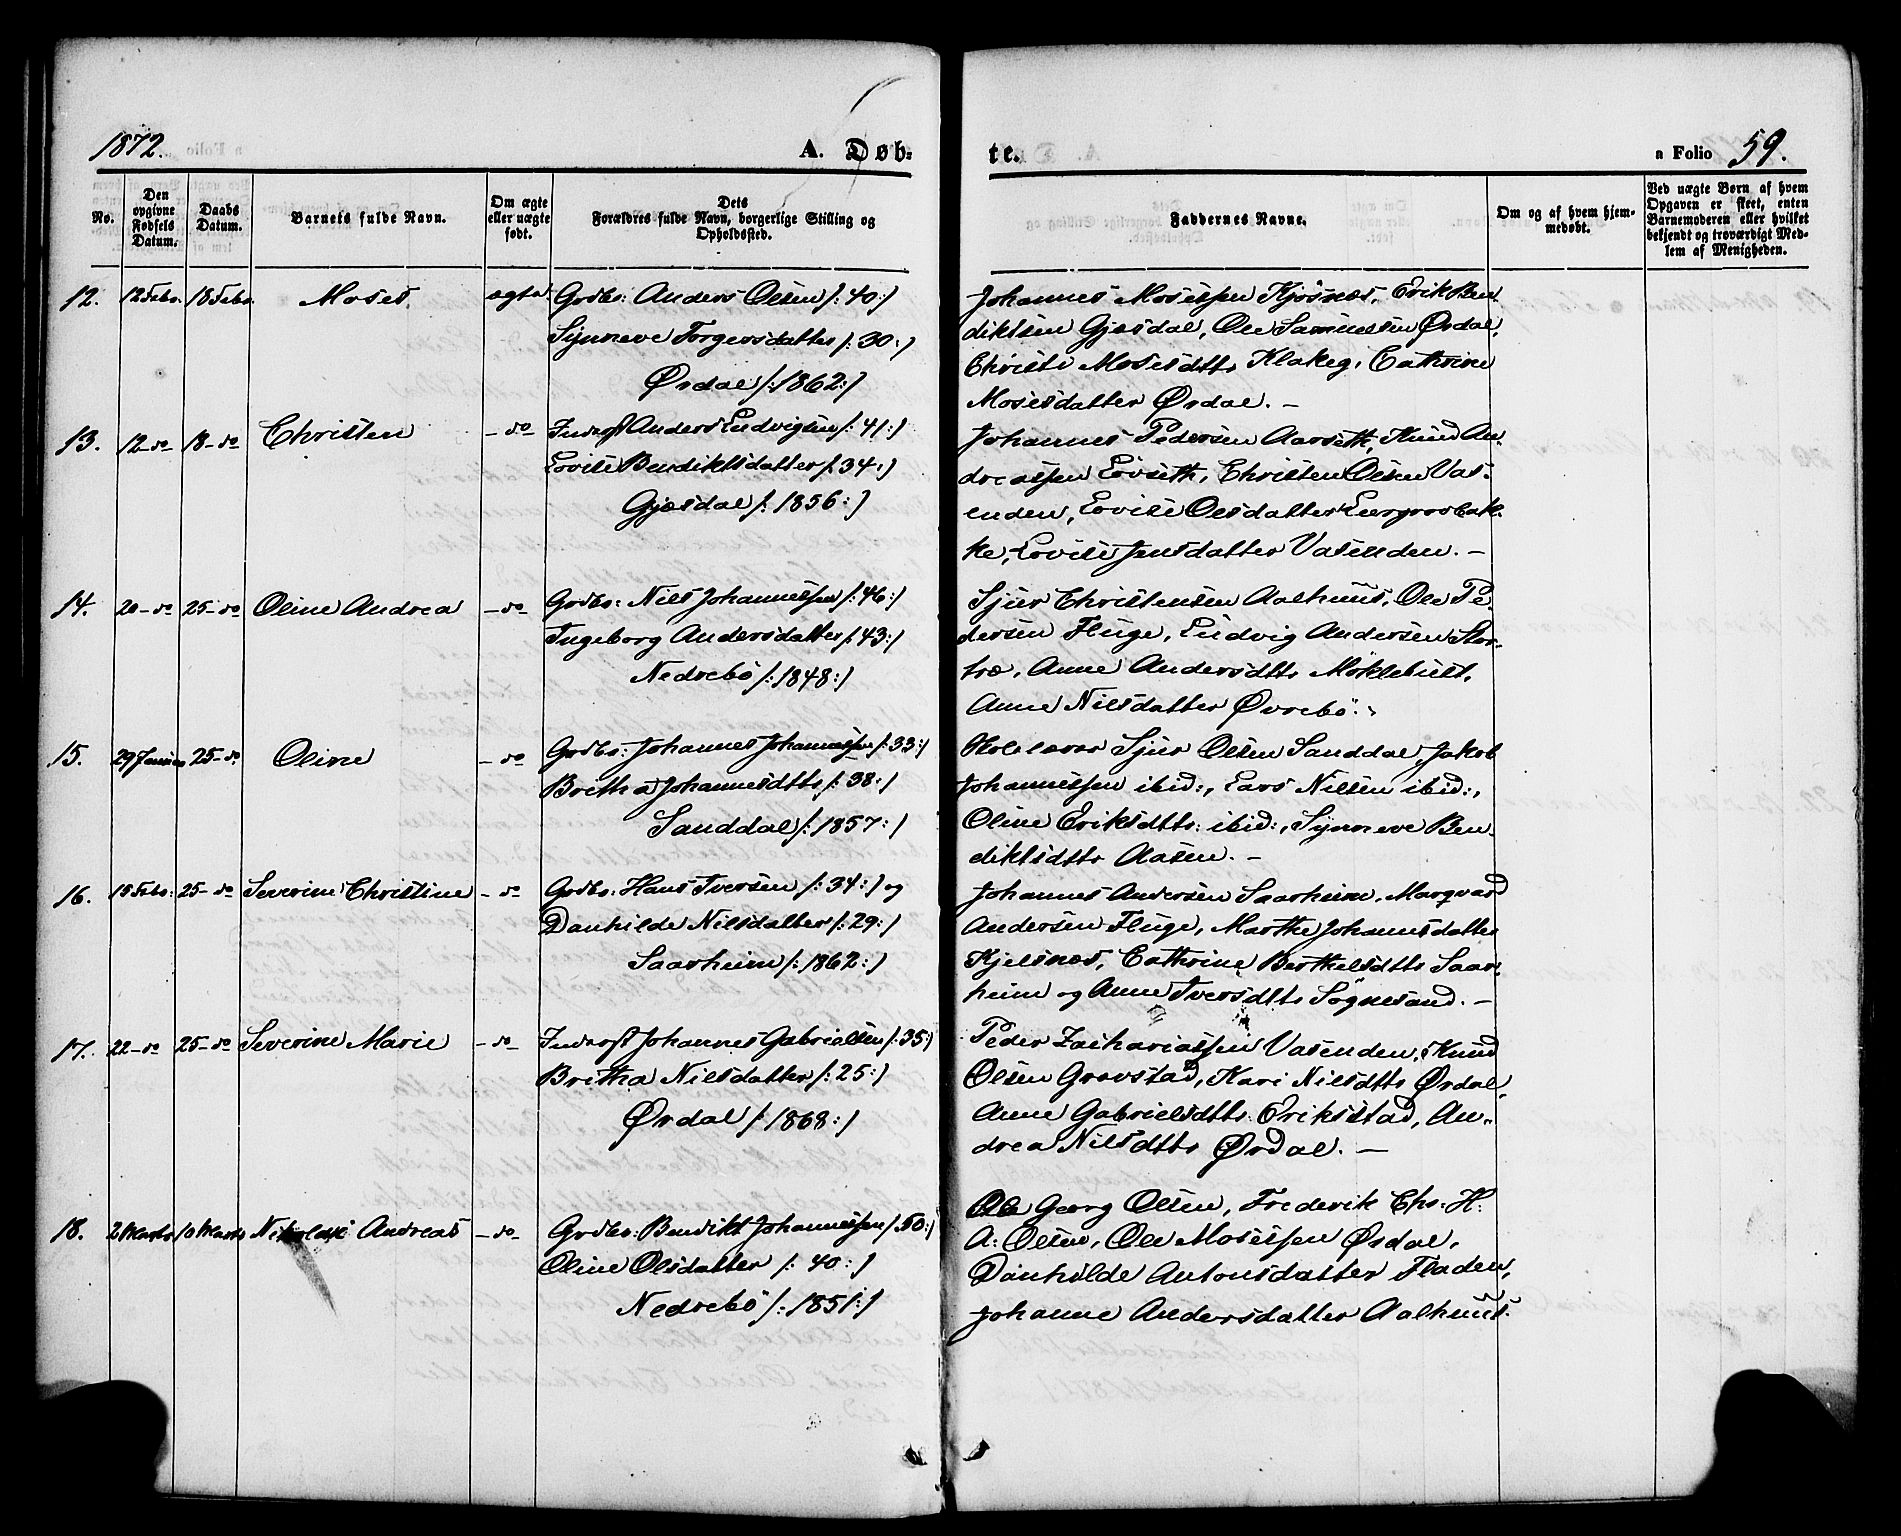 1872. A. Døb- te. a Folio 59.
No.
Den opgivne Fødsels Datum.
Daabs Datum.
Barnets fulde Navn.
Om ægte eller uægte født.
Dets Forældres fulde Navn, borgerlige Stilling og Opholdssted.
Faddernes Navne.
Om og af hvem hjemmedøbt.
Ved uægte Børn af hvem Opgaven er skeet, enten Barnemoderen eller hvilket bekjendt og troværdigt Medlem af Menigheden.
12. 12 Febr. 18 Febr. Moses. ægte Grdbr: Anders Olsen /: 40:/
Synneve Torgersdatter /: 30:/
Ørdal /: 1862:/
Johannes Mosessen Kjøsnæs, Erik Ben
diktsen Gjesdal, Ole Samuelsen Ørdal,
Christi Mosesdttr Klakeg, Cathrine
Mosesdatter Ørdal. –
13. 12 – do 18 – do Christen – do Inderst Anders Ludvigsen /: 41:/
Lovise Bendiktsdatter /: 34:/
Gjesdal /: 1856:/
Johannes Pedersen Aarseth, Knud An-
dreassen Løvseth, Christen Olsen Vas-
enden, Lovise Olsdatter
ke, Lovise Jensdatter Vasenden. –
14. 20 – do 25 – do Oline Andrea – do Grdbr: Nils Johannessen /: 46:/
Ingeborg Andersdatter /: 43:/
Nedrebö /: 1848:/
Sjur Christensen Aalhuus, Ole Pe
dersen Fluge, Ludvig Andersen Stor-
træ, Anne Andersdttr Møklebust,
Anne Nilsdatter Øvrebö. –
15. 29 Januar 25 – do Oline – do Grdbr: Johannes Johannessen /: 33:/
Britha Johannesdttr /: 38:/
Sanddal /: 1857:/
Skolelærer Sjur Olsen Sanddal, Jakob
Johannessen ibid:, Lars Nilsen ibid:,
Oline Eriksdttr: ibid:, Synneve Ben-
diktsdttr Aasen. –
16. 15 Febr: 25 – do Severine Christine – do Grdbr: Hans Iversen /: 34:/ og
Danhilde Nilsdatter /: 29:/
Saarheim /: 1862:/
Johannes Andersen Saarheim, Marqvard
Andersen Fluge, Marthe Johannesdatter
Kjelsnæs, Cathrine Berthelsdttr Saar-
heim og Anne Iversdttr Søgnesand. –
17. 22 – do 25 – do Severine Marie – do – Inderst Johannes Gabrielsen /: 35:/
Britha Nilsdatter /: 25:/
Ørdal /: 1868:/
Peder Zachariassen Vasenden, Knud
Olsen Grovstad, Kari Nilsdttr Ørdal,
Anne Gabrielsdttr Eriksstad, An-
drea Nilsdttr Ørdal. –
18. 2 Marts 10 Marts Nikolai Andreas – do – Grdbr: Bendikt Johannessen /: 50:/
Oline Olsdatter /: 40:/
Nedrebö /: 1851:/
Ole Georg Olsen, Frederik Chr: H:
A: Olsen, Ole Mosessen Ørdal,
Danhilde Antonsdatter Fladen,
Johanne Andersdatter Aalhuus.